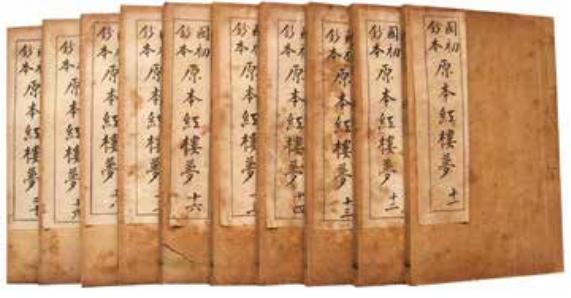 國初
鈔本
原本紅樓夢 十一
國初
鈔本
原本紅樓夢 十二
國初
鈔本
原本紅樓夢 十三
國初
鈔本
原本紅樓夢 十四
國初
鈔本
原本紅樓夢 十
國初
鈔本
原本紅樓夢 十六
國初
鈔本
原本紅樓夢 十
國初
鈔本
原本紅樓夢 十
國初
鈔本
原本紅樓夢 十
國初
鈔本
原本紅樓夢 二十